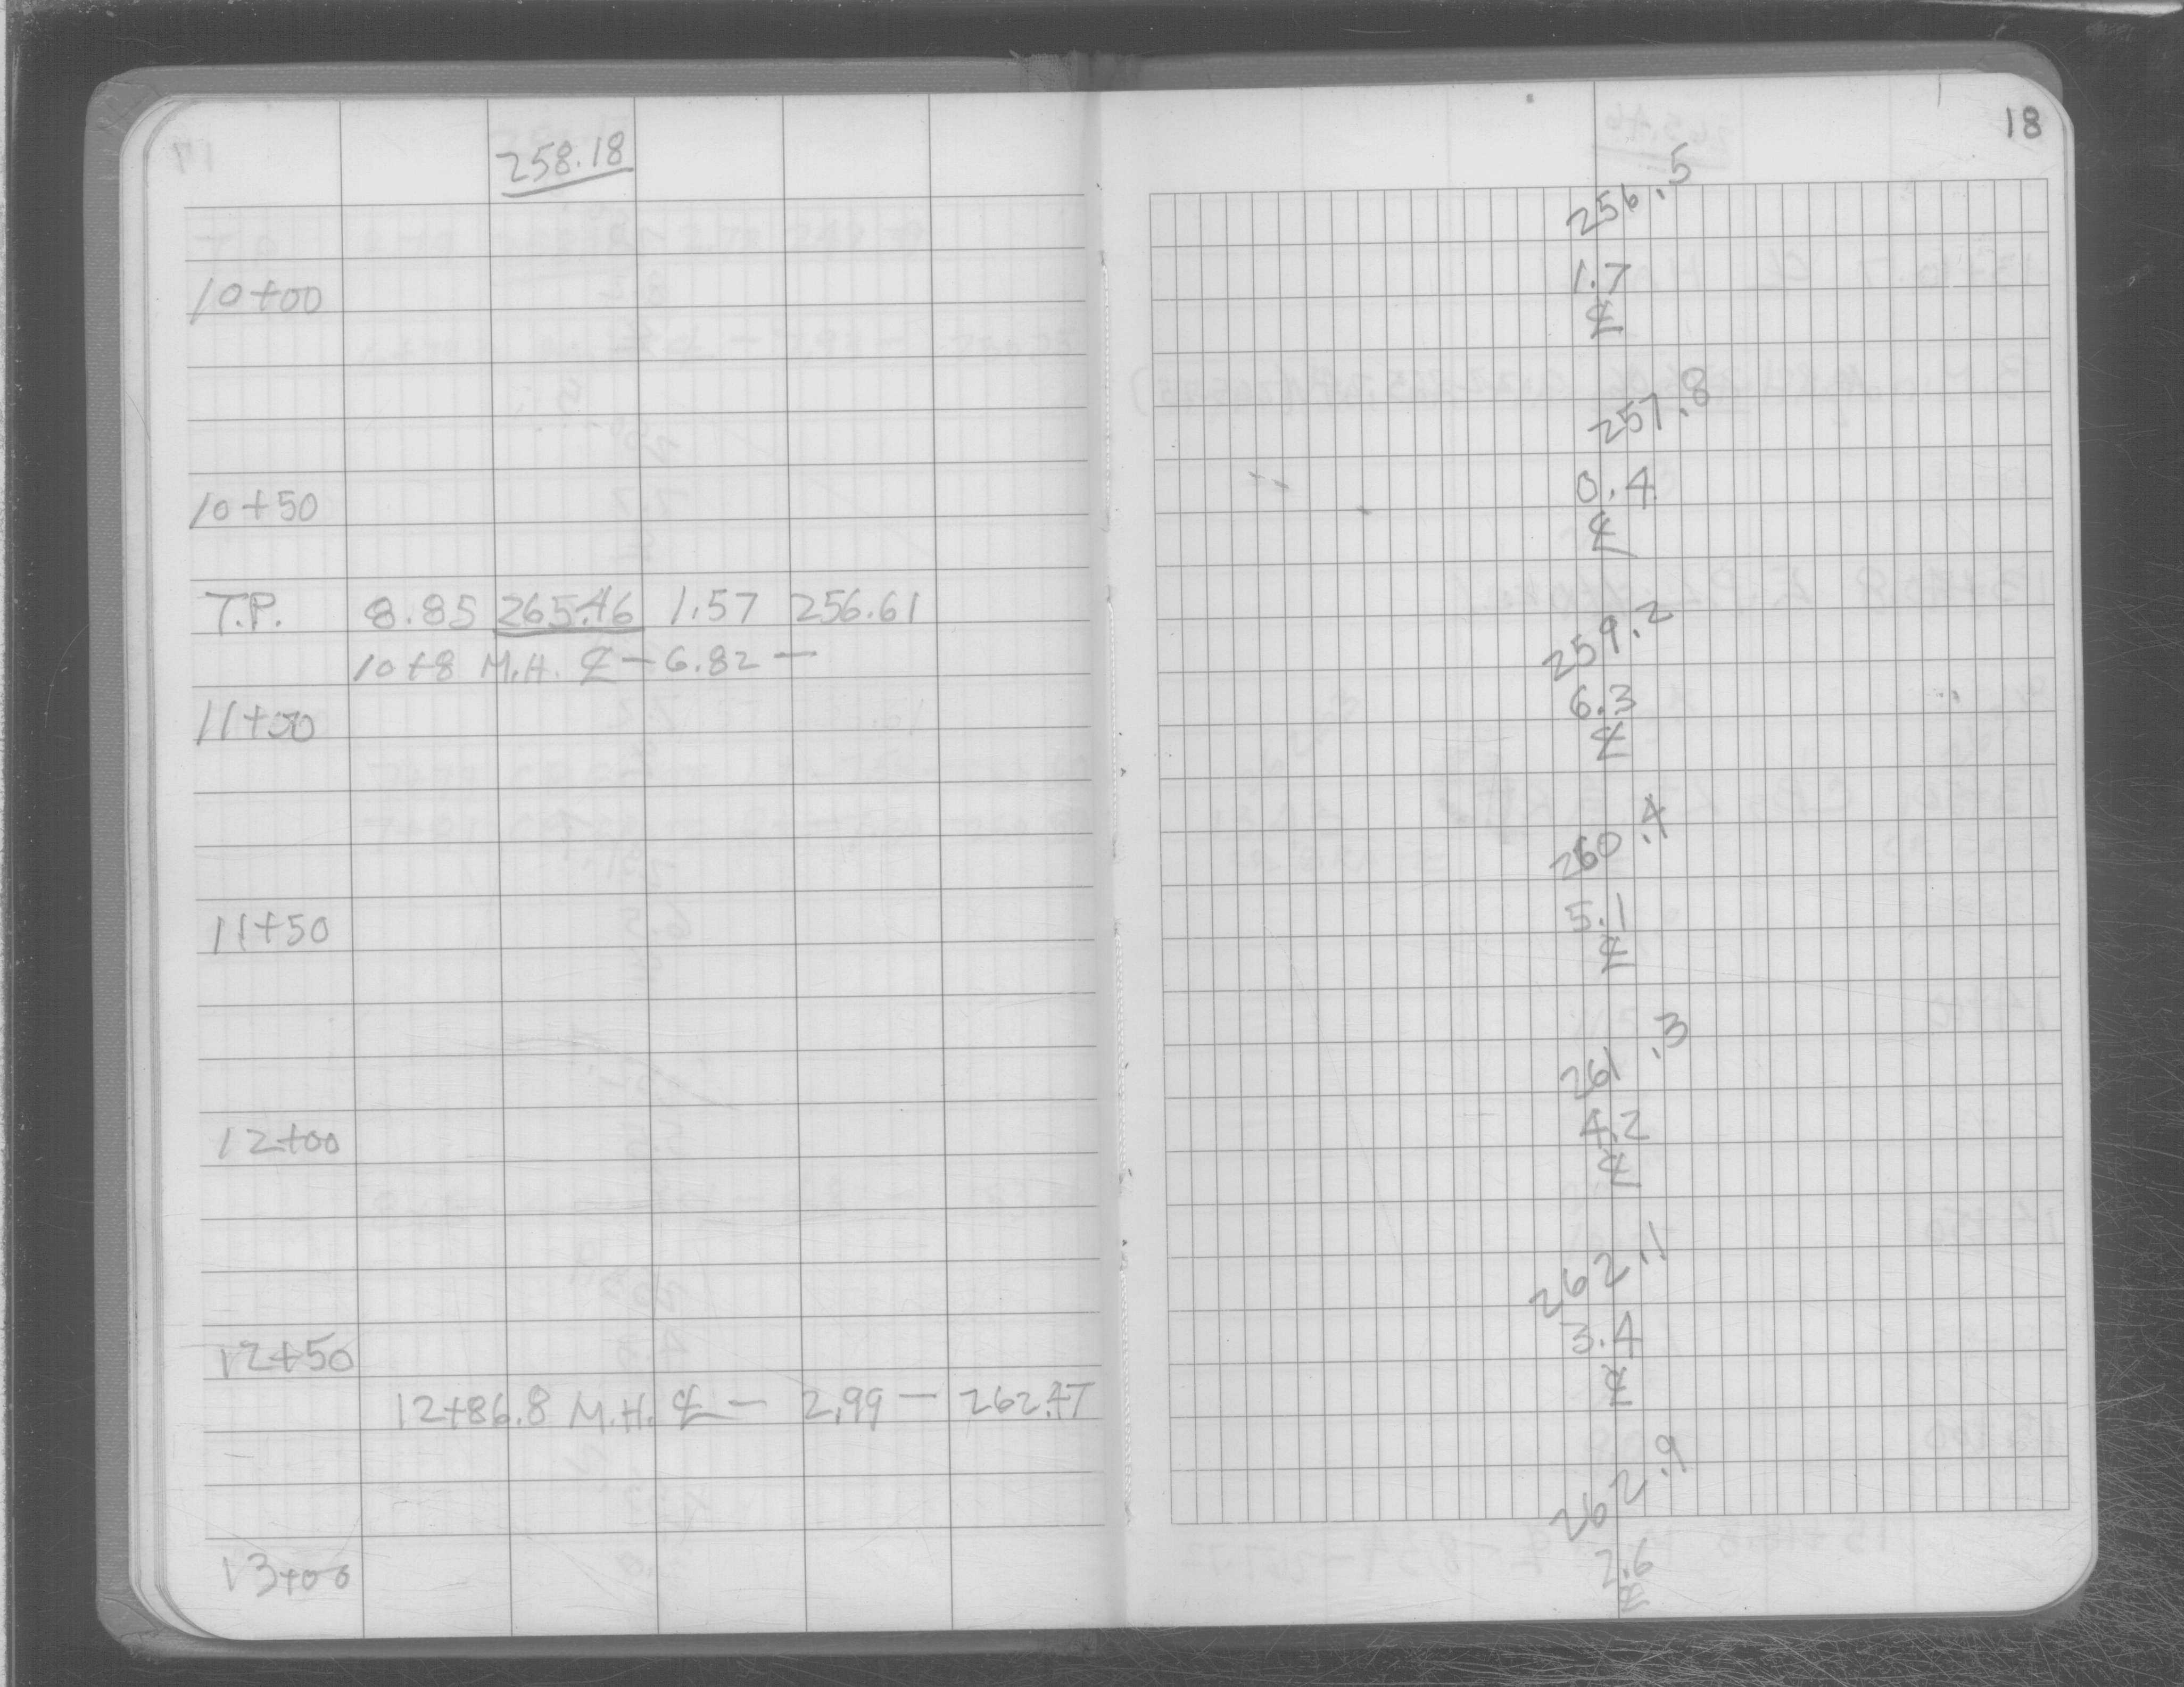 258.18
10+00
10+50
T.P. 8.85 265.46 1.57 256.61
10+8 M.H. ℄ - 6.82 -
11+00
11+50
12+00
12+50
12+86.8 M.H. ℄ - 2.99 - 262.47
13+00
18
256.5
1.7
℄
257.8
0.4
℄
259.2
6.3
℄
260.4
5.1
℄
261.3
4.2
℄
262.1
3.4
℄
262.9
2.6
℄